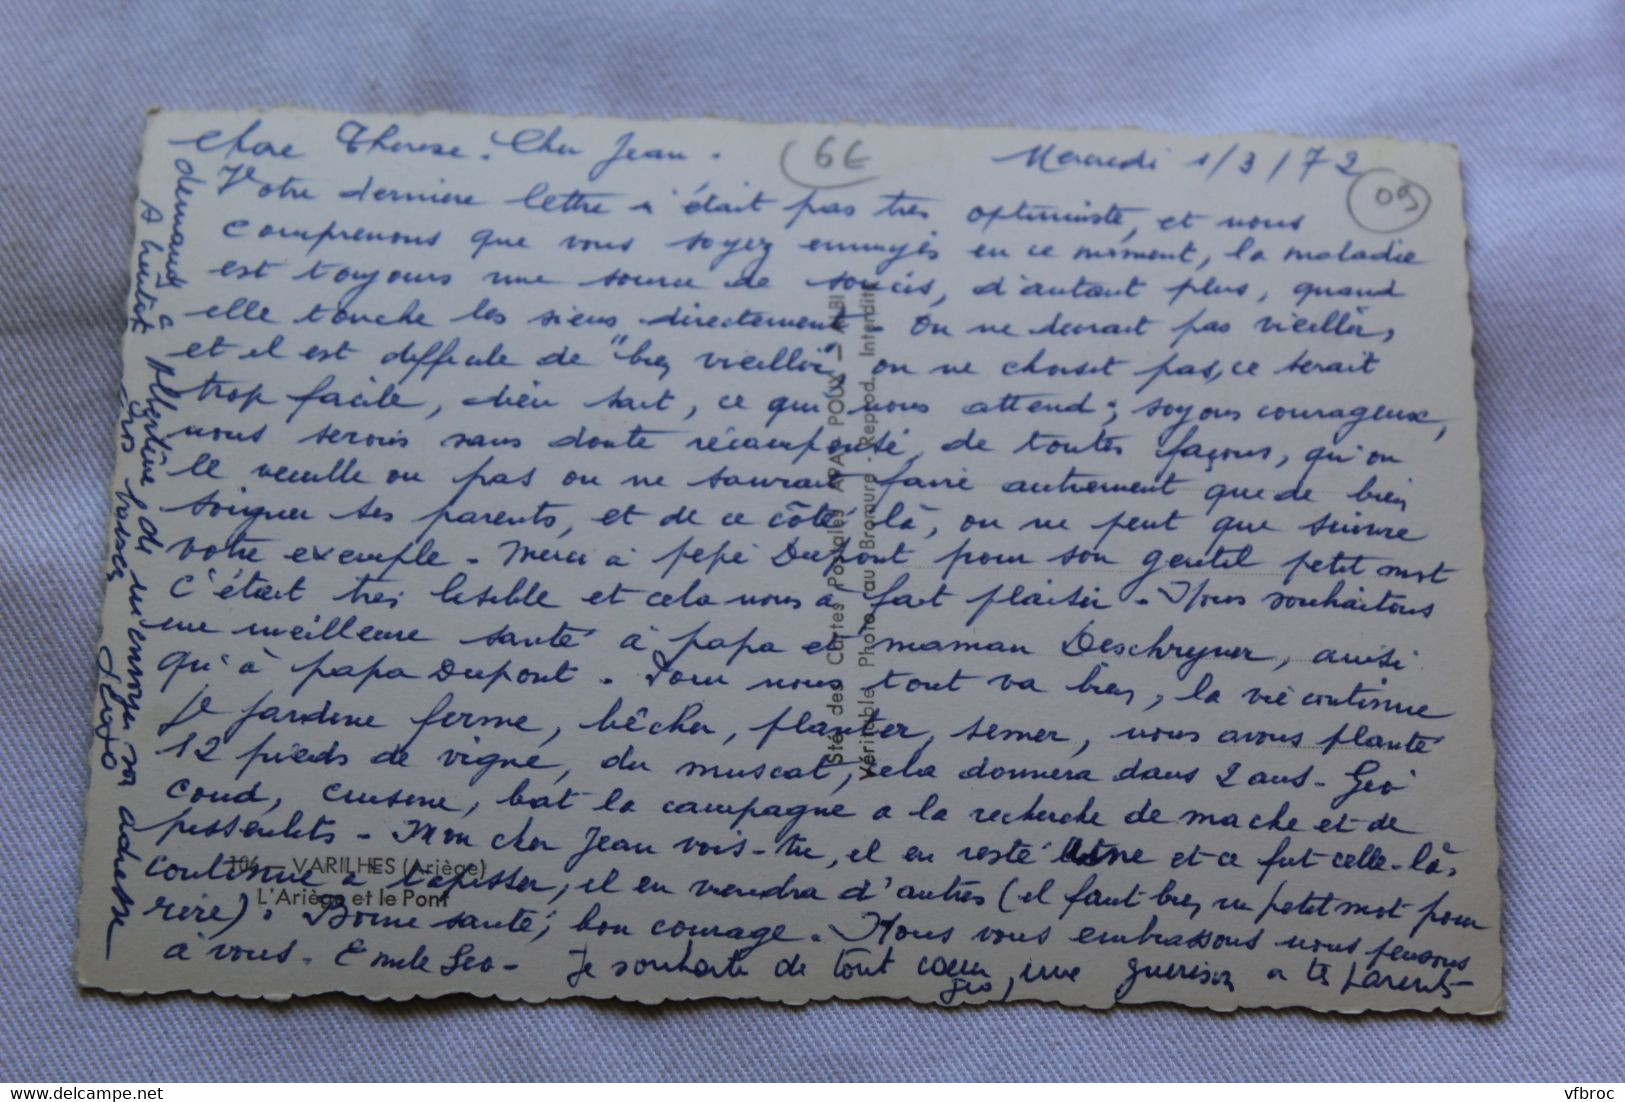 Chère Therese. Cher Jean.
66
Mercredi 1/3/72
09
Votre dernière lettre n'était pas très optimiste, et nous
comprenons que vous soyez ennuyés en ce moment, la maladie
est toujours une source de soucis, d'autant plus, quand
elle touche les siens directement. On ne devrait pas vieillir,
et il est difficile de "bien vieillir", on ne choisit pas, ce serait
trop facile, dieu sait, ce qui nous attend; soyons courageux,
nous serons sans doute récompensé, de toutes façons, qu'on
le veuille ou pas on ne saurait faire autrement que de bien
soigner ses parents, et de ce côté là, on ne peut que suivre
votre exemple - Merci à pépé Dupont pour son gentil petit mot
C'était très lisible et cela nous a fait plaisir - Nous souhaitons
une meilleure santé à papa et maman Deschryver, ainsi
qu'à papa Dupont - Pour nous tout va bien, la vie continue
je jardine ferme, bêcher, planter, semer, nous avons planté
12 pieds de vigne, du muscat, cela donnera dans 2 ans - Géo
coud, cuisine, bat la campagne a la recherche de mache et de
pissenlits - Mon cher Jean vois-tu, il en reste une et ce fut celle-là,
continue a tapisser, il en viendra d'autres (il faut bien un petit mot pour
rire). Bonne santé, bon courage. Nous vous embrassons nous pensons
à vous. Emile Géo - Je souhaite de tout cœur, une guérison a tes parents
Géo
demande a Albertine de m'envoyer son adresse
A bientot Gros baisers
Ste des Cartes Postales APA-POUX — ALBI
Véritable Photo au Bromure - Reprod. Interdite
106 - VARILHES (Ariège)
L'Ariège et le Pont
vfbroc